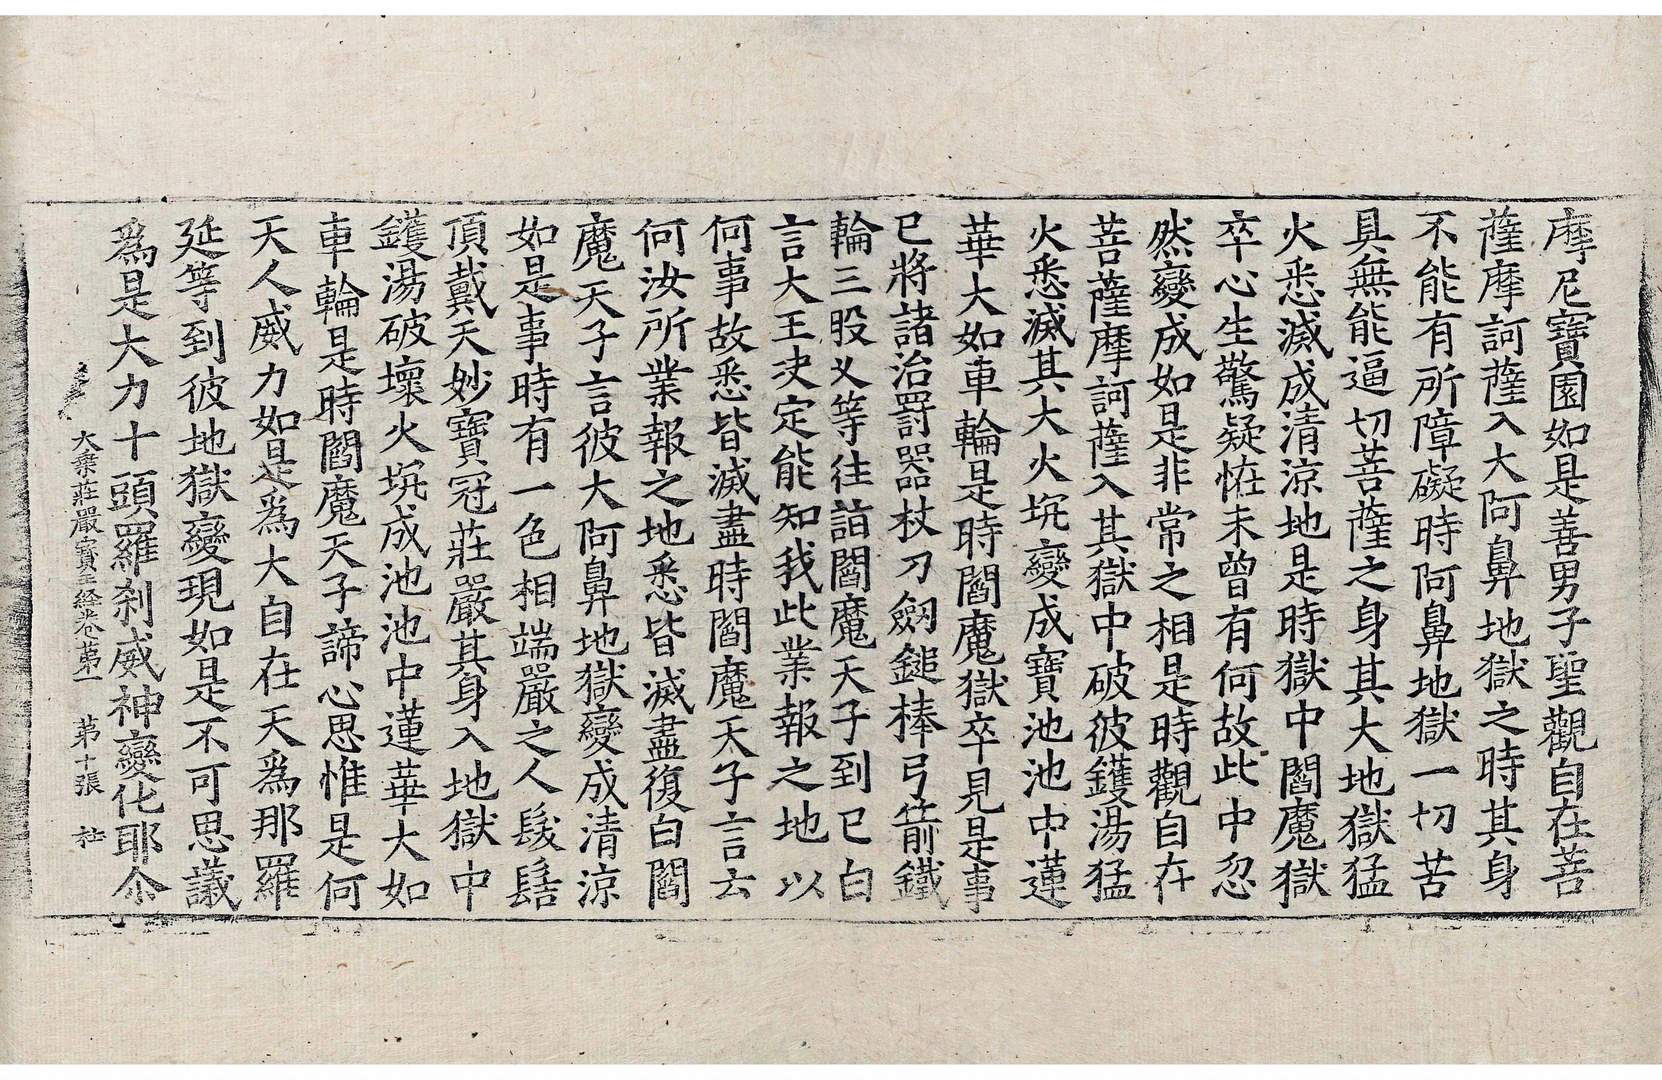 摩尼寶園如是善男子聖觀自在菩
薩摩訶薩入大阿鼻地獄之時其身
不能有所障礙時阿鼻地獄一切苦
具無能逼切菩薩之身其大地獄猛
火悉滅成清涼地是時獄中閻魔獄
卒心生驚疑恠未曾有何故此中忽
然變成如是非常之相是時觀自在
菩薩摩訶薩入其獄中破彼鑊湯猛
火悉滅其大火坑變成寶池池中蓮
華大如車輪是時閻魔獄卒見是事
已將諸治罰器杖刀劒鎚棒弓箭鐵
輪三股叉等往詣閻魔天子到已白
言大王決定能知我此業報之地以
何事故悉皆滅盡時閻魔天子言云
何汝所業報之地悉皆滅盡復白閻
魔天子言彼大阿鼻地獄變成清涼
如是事時有一色相端嚴之人髮髻
頂戴天妙寶冠莊嚴其身入地獄中
鑊湯破壞火坑成池池中蓮華大如
車輪是時閻魔天子諦心思惟是何
天人威力如是爲大自在天爲那羅
延等到彼地獄變現如是不可思議
爲是大力十頭羅刹威神變化耶尒
大乗莊嚴寶王経卷苐一 苐十張 社